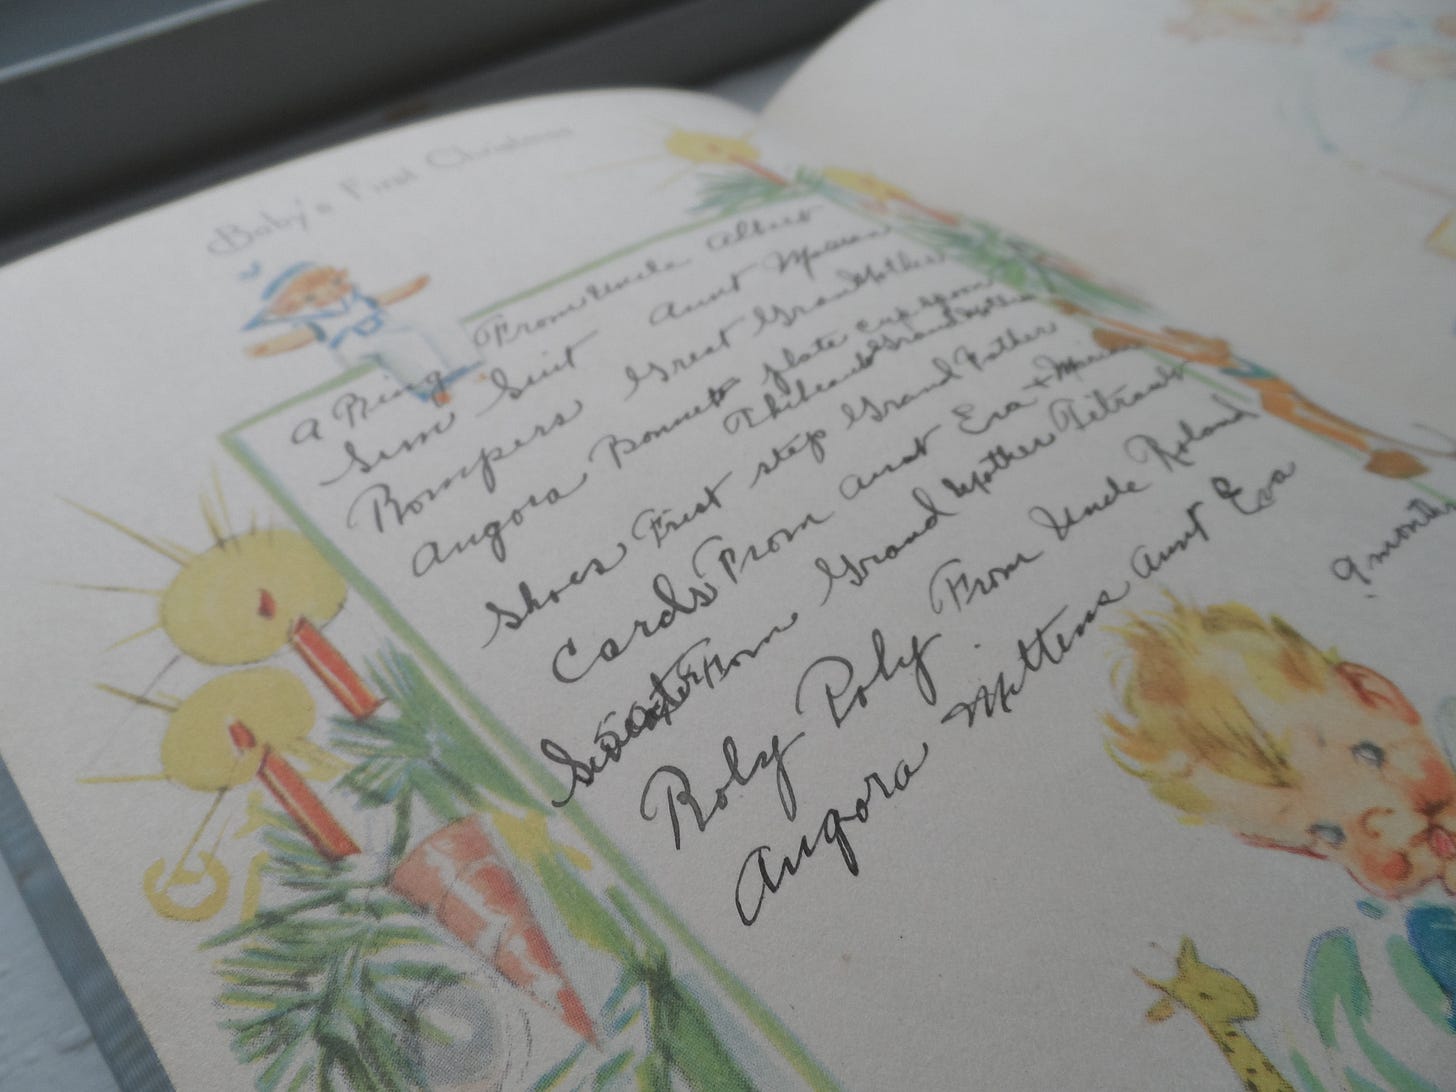 Baby's First Christmas
A Ring From Uncle Albert
Sun Suit Aunt
Rompers Great Grandmother
Angora Bonnet plate cup spoon
Thibeault Grandmother
Shoes First step Grand Father
Cards From aunt Eva +
Sweater From Grand Mother Tetrault
Roly Poly From Uncle Roland
Angora Mittens aunt Eva
9 months